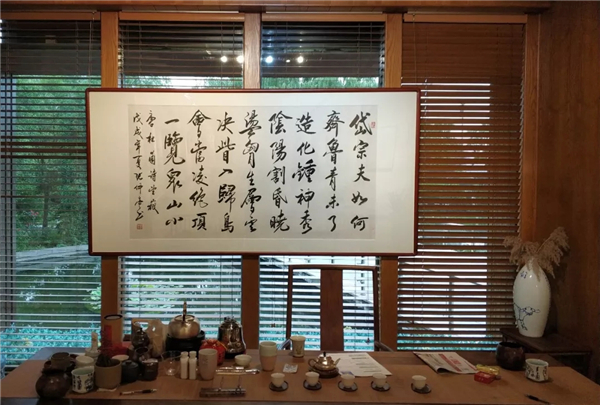 岱宗夫如何
齊魯青未了
造化鍾神秀
陰陽割昏曉
盪胸生層雲
決眥入歸鳥
會當凌絕頂
一覽眾山小
唐杜甫詩望嶽
戊戌年夏